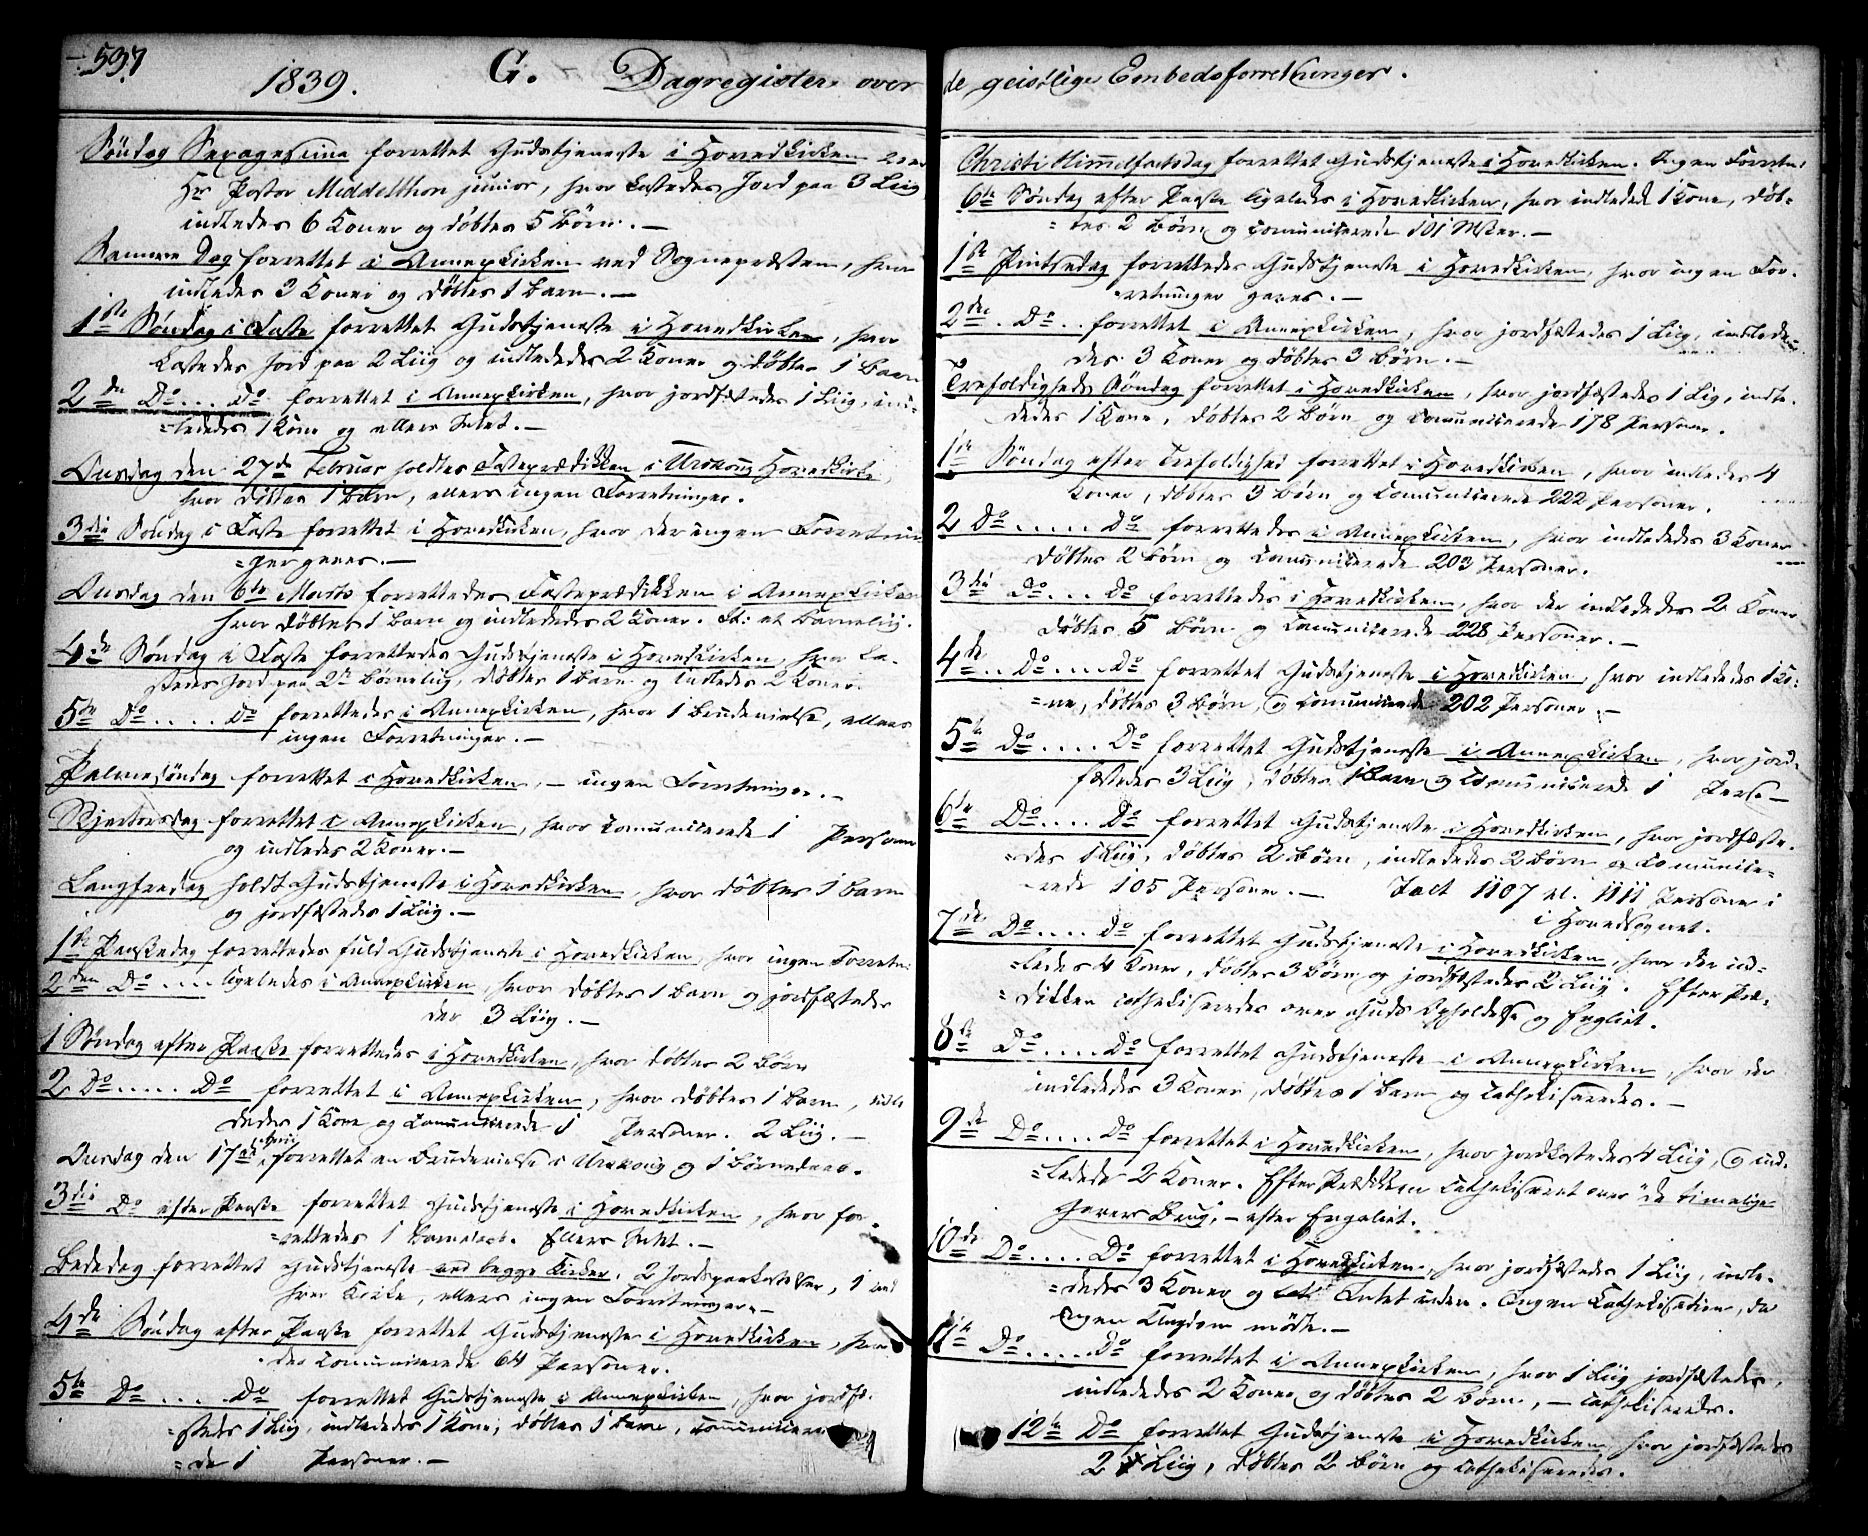 537
1839. G. Dagregister over
Søndag Sexagesima forrettet Gudstjeneste i Hovedkirken ved
Hr Pastor Middelthon junior, hvor kastedes Jord paa 3 Liig
indledes 6 Koner og døbtes 5 Børn. —
Samme Dag forrettet i Annexkirken ved Sognepræsten, hvor
indledes 3 Koner og døbtes 1 Barn. —
1ste Søndag i Faste forrettet Gudstjeneste i Hovedkirken, hvor
kastedes Jord paa 2 Liig og indlededes 2 Koner og døbtes 1 Barn
2den Do... Do forrettet i Annexkirken, hvor jordfæstedes 1 Liig, ind-
=lededes 1 Kone og ellers Intet. —
Onsdag den 27de Februar holdtes Fasteprædikken i Urskoug Hovedkirke,
hvor døbtes 1 Barn, ellers ingen Forretninger.
3die Søndag i Faste forrettet i Hovedkirken, hvor der ingen Forretnin
=ger gaves. —
Onsdag den 6te Marts forrettedes Fasteprædikken i Annexkirken
hvor døbtes 1 Barn og indlededes 2 Koner. It: et Barneliig.
4de Søndag i Faste forrettedes Gudstjeneste i Hovedkirken, hvor ka-
stedes Jord paa 2de Børneliig, døbtes 1 Barn og indledes 2 Koner.
5te Do..... Do forrettedes i Annexkirken, hvor 1 Brudevielse, ellers
ingen Forretninger. —
Palmesøndag forrettet i Hovedkirken, — ingen Forretninger. —
Skjertorsdag forrettet i Annexkirken, hvor Comunicerede 1 Person
og indledes 2 Koner. —
Langfredag holdt Gudstjeneste i Hovedkirken, hvor døbtes 1 Barn
og jordfæstedes 1 Liig. —
1ste Paaskedag forrettedes fuld Gudstjeneste i Hovedkirken, hvor ingen Forretn:
2den Do.... ligeledes i Annexkirken, hvor døbtes 1 Barn og jordfæstedes
der 3 Liig. —
1 Søndag efter Paaske forrettedes i Hovedkirken, hvor døbtes 2 Børn
2 Do...... Do forrettet i Annexkirken, hvor døbtes 1 Barn, indle
dedes 1 Kone og Comunicerede 1 Personer. 2 Liig. —
Onsdag den 17de April forrettet en Brudevielse i Urskoug og 1 Børnedaab.
3die Do efter Paaske forrettet Gudstjeneste i Hovedkirken, hvor for-
=rettedes 1 Barnedaab. Ellers Intet. —
Bededag forrettet Gudstjeneste ved begge Kirker. 2 Jordspaakastelser, 1 ved
hver Kirke, ellers ingen Forretninger. —
4de Søndag efter Paaske forrettet Gudstjeneste i Hovedkirken, hvor
der Comunicerede 64 Personer.
5te Do..... Do forrettet Gudstjeneste i Annexkirken, hvor jordfæ-
=stedes 1 Liig, indlededes 1 Kone, døbtes 1 Barn, comunicere
=de 1 Personer. —
de geistlige Embedsforretninger.
Christi Himmelfartsdag forrettet Gudstjeneste i Hovedkirken. Ingen Forretn:
6te Søndag efter Paaske ligeledes i Hovedkirken, hvor indledede 1 Kone, døb-
=tes 2 Børn og comunicerede 101
1ste Pintsedag forrettedes Gudstjeneste i Hovedkirken, hvor ingen For-
retninger gaves. —
2den.. Do.. forrettet i Annexkirken, hvor jordfæstedes 1 Liig, indlede-
des 3 Koner og døbtes 3 Børn. —
Trefoldigheds Søndag forrettet i Hovedkirken, hvor jordfæstedes 1 Lig, indle-
dedes 1 Kone, døbtes 2 Børn og Comunicerede 178 Personer.
1ste Søndag efter Trefoldighed forrettet i Hovedkirken, hvor indledes 4
Koner, døbtes 3 Børn og Comunicerede 222 Personer.
2 Do..... Do forrettedes i Annexkirken, hvor indlededes 3 Koner
døbtes 2 Børn og Comunicerede 203 Personer.
3die Do.... Do forrettedes i Hovedkirken, hvor der indlededes 2 Koner
døbtes 5 Børn og Comunicerede 228 Personer. —
4de.. Do.... Do forrettet Gudstjeneste i Hovedkirken, hvor indlededes 1 Ko-
=ne, døbtes 3 Børn, og Comunicerede 202 Personer. —
5te Do.... Do forrettet Gudstjeneste i Annexkirken, hvor jord-
fæstedes 3 Liig, døbtes 1 Barn og Comunicerede 1 Perso—
6te Do.... Do forrettet Gudstjeneste i Hovedkirken, hvor jordfæste-
=des 1 Liig, døbtes 2 Børn, indlededes 2 Børn og Comunice-
=rede 105 Personer. — Talt 1107 el. 1111 Personer i
i Hovedsognet.
7de Do.... Do forrettet Gudstjeneste i Hovedkirken, hvor der ind-
=ledes 4 Koner, døbtes 3 Børn og jordfæstedes 2 Liig. Efter Præ-
=dikken catheksiseredes over Guds Opholdelse og Englid.
8de Do.... Do forrettet Gudstjeneste i Annexkirken, hvor der
indlededes 3 Koner, døbtes 1 Barn og cathekiseredes. —
9de Do.... Do forrettet i Hovedkirken, hvor jordkastedes 4 Liig, og ind-
=ledede 2 Koner. Efter Prædikken Cathekiseret over "de timelige
Gavers Brug", — efter
10de Do.... Do forrettet i Hovedkirken, hvor jordfæstedes 1 Liig, indle-
=dedes 3 Koner og Intet uden. Ingen Cathekisation, da
ingen Ungdom mødte. —
11te Do..... Do forrettet i Annexkirken, hvor 1 Liig jordfæstedes,
indlededes 2 Koner og døbtes 2 Børn, — cathekiseredes.
12te Do forrettet Gudstjeneste i Hovedkirken, hvor jordfæstedes
2 Liig, døbtes 2 Børn og cathekiseredes.